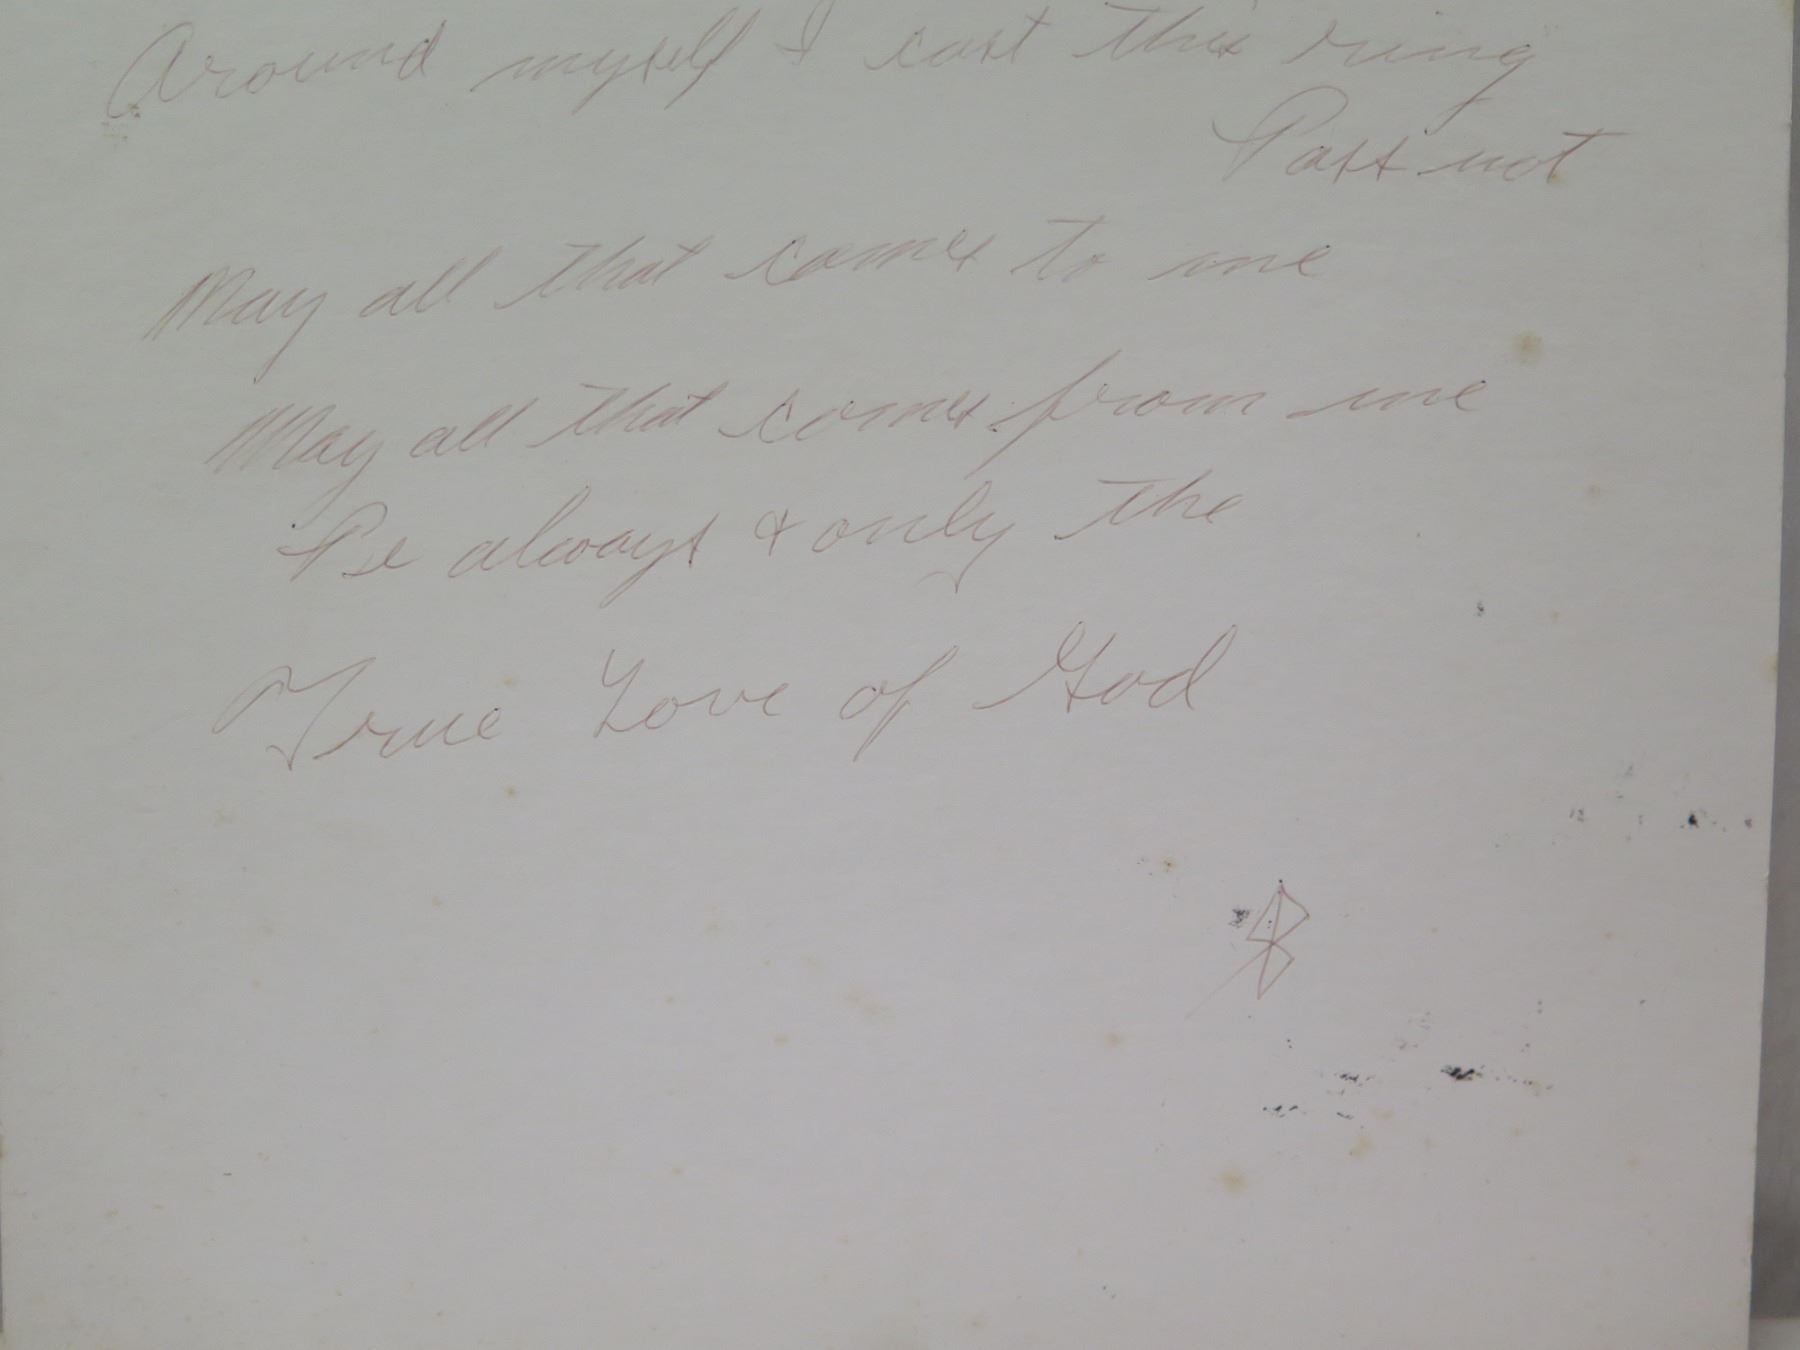 Around myself I cast this ring
Pass not
May all that comes to me
May all that comes from me
Be always & only the
True Love of God